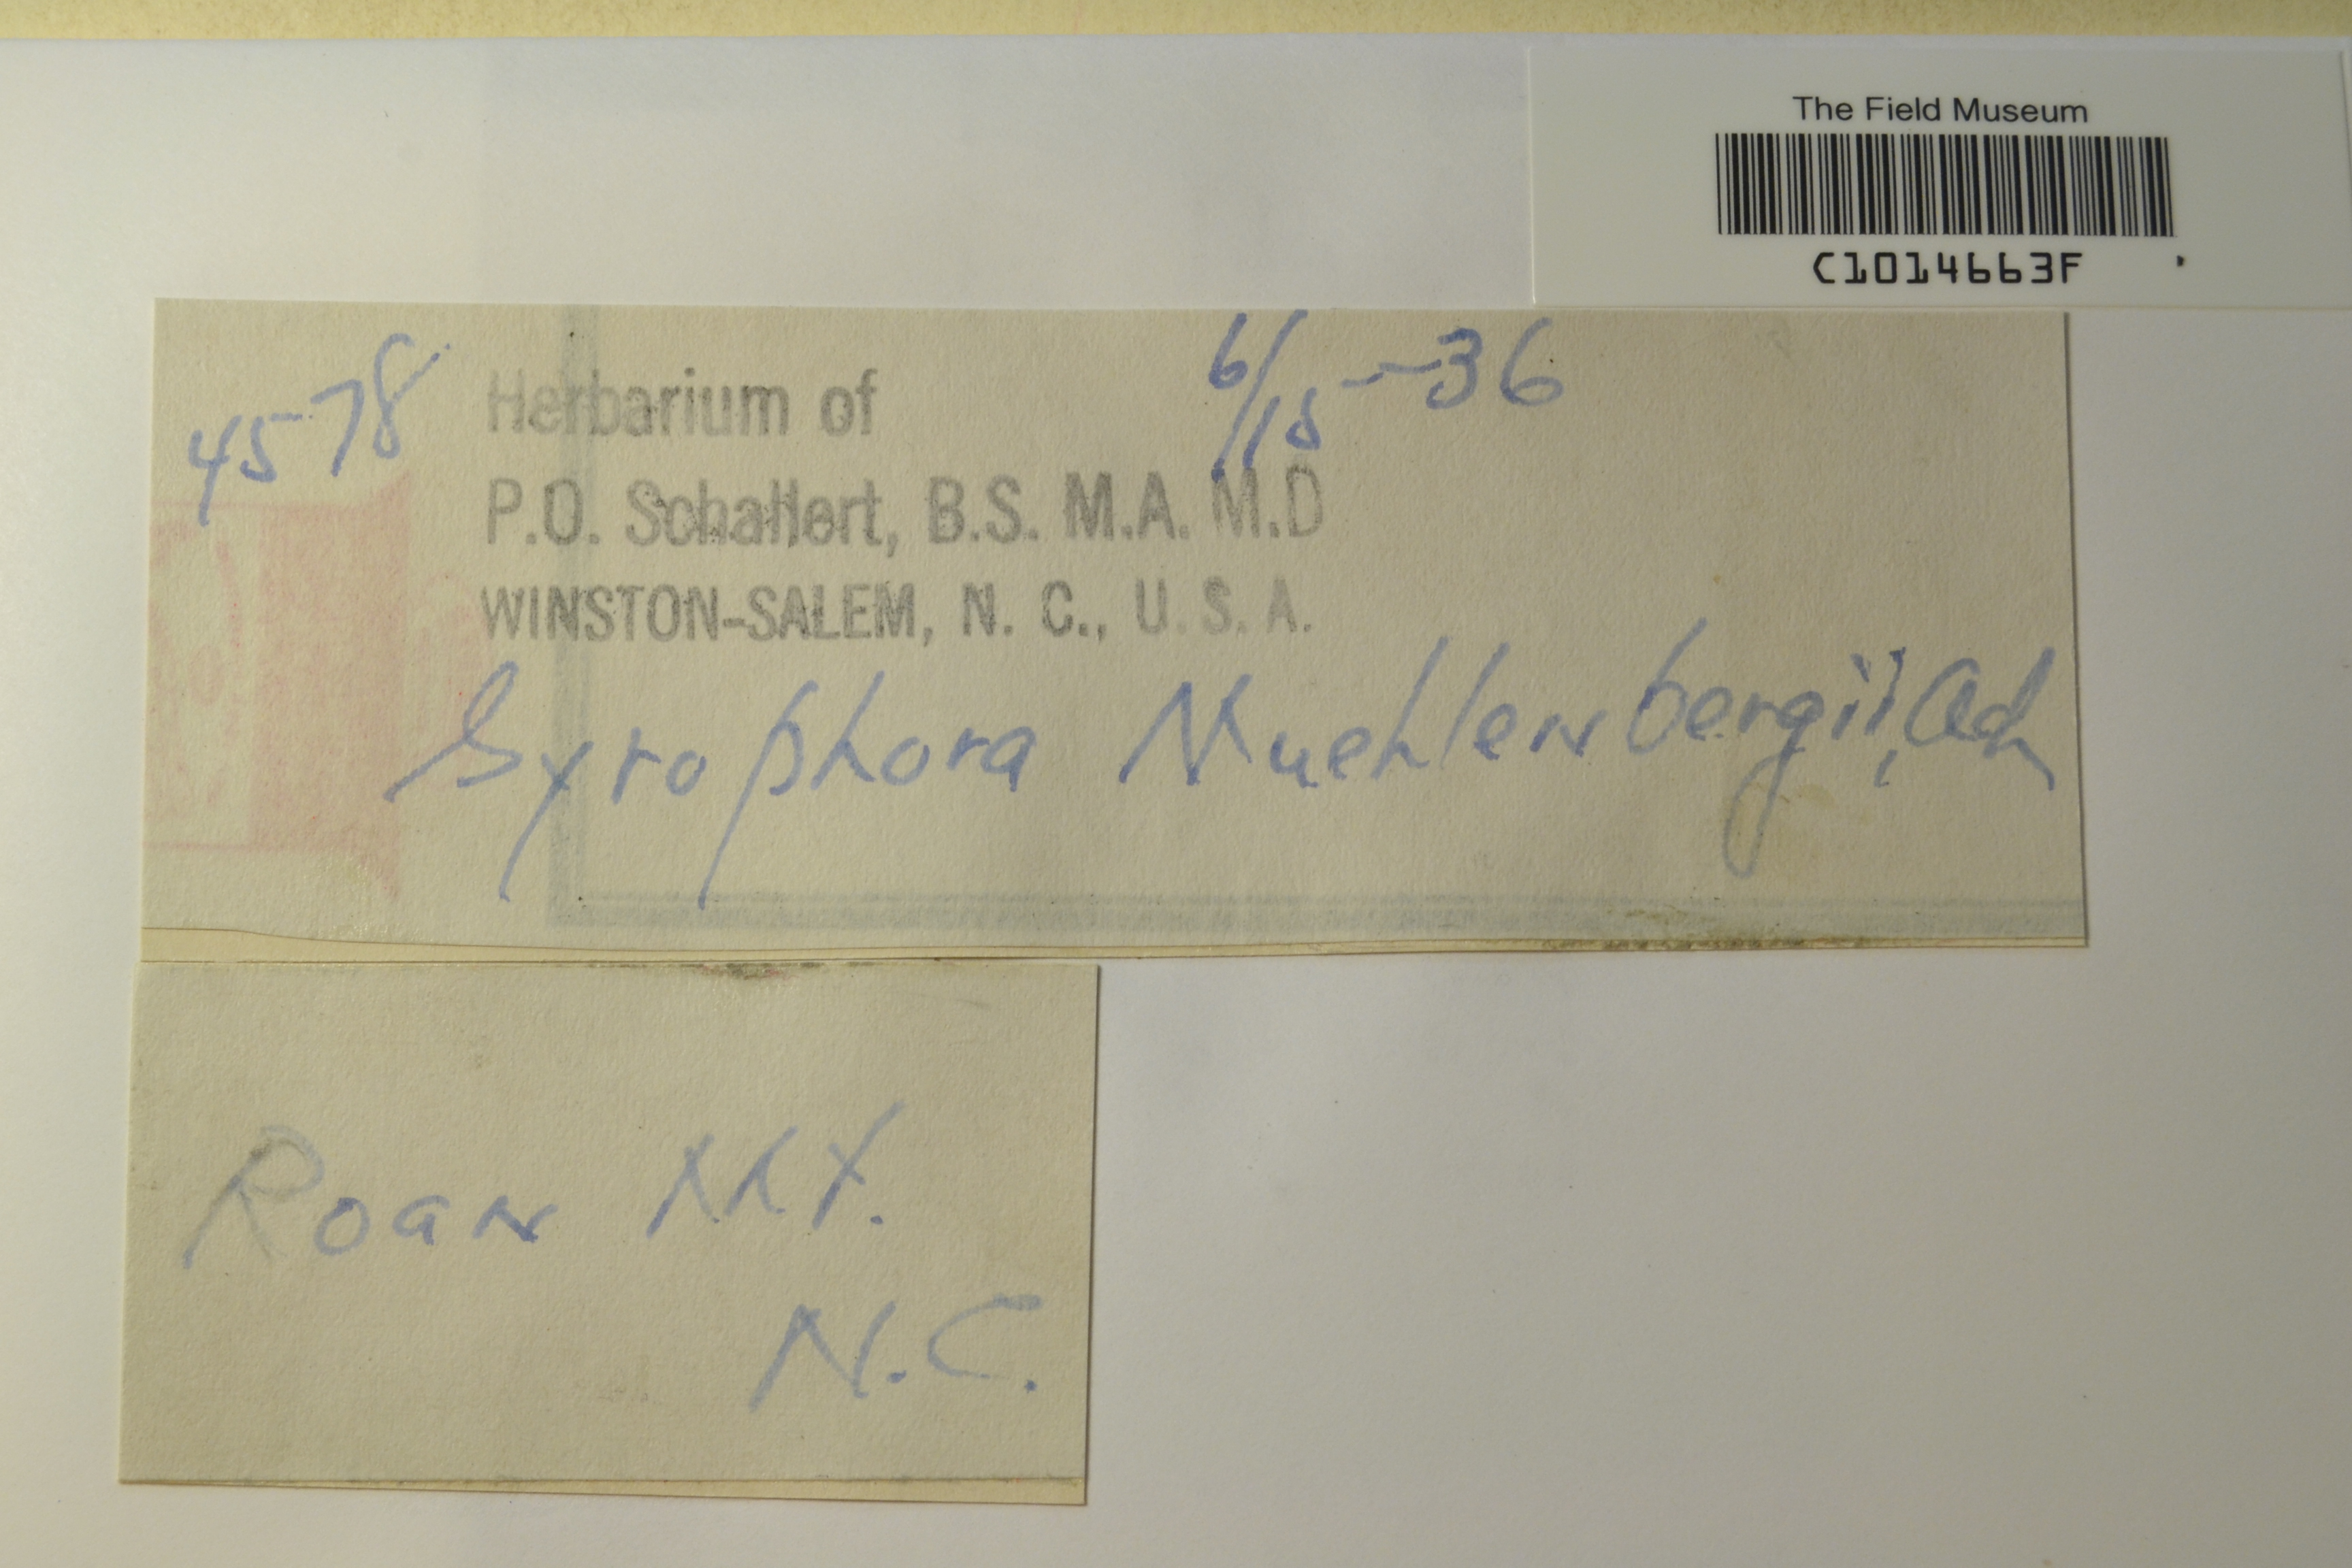 The Field Museum
C1014663F
4578
6/15--36
Herbarium of
P.O. Schallert, B.S. M.A. M.D
WINSTON-SALEM, N. C., U. S. A.
Gyrophora Muehlenbergii, Ach
Roan Mt.
N.C.